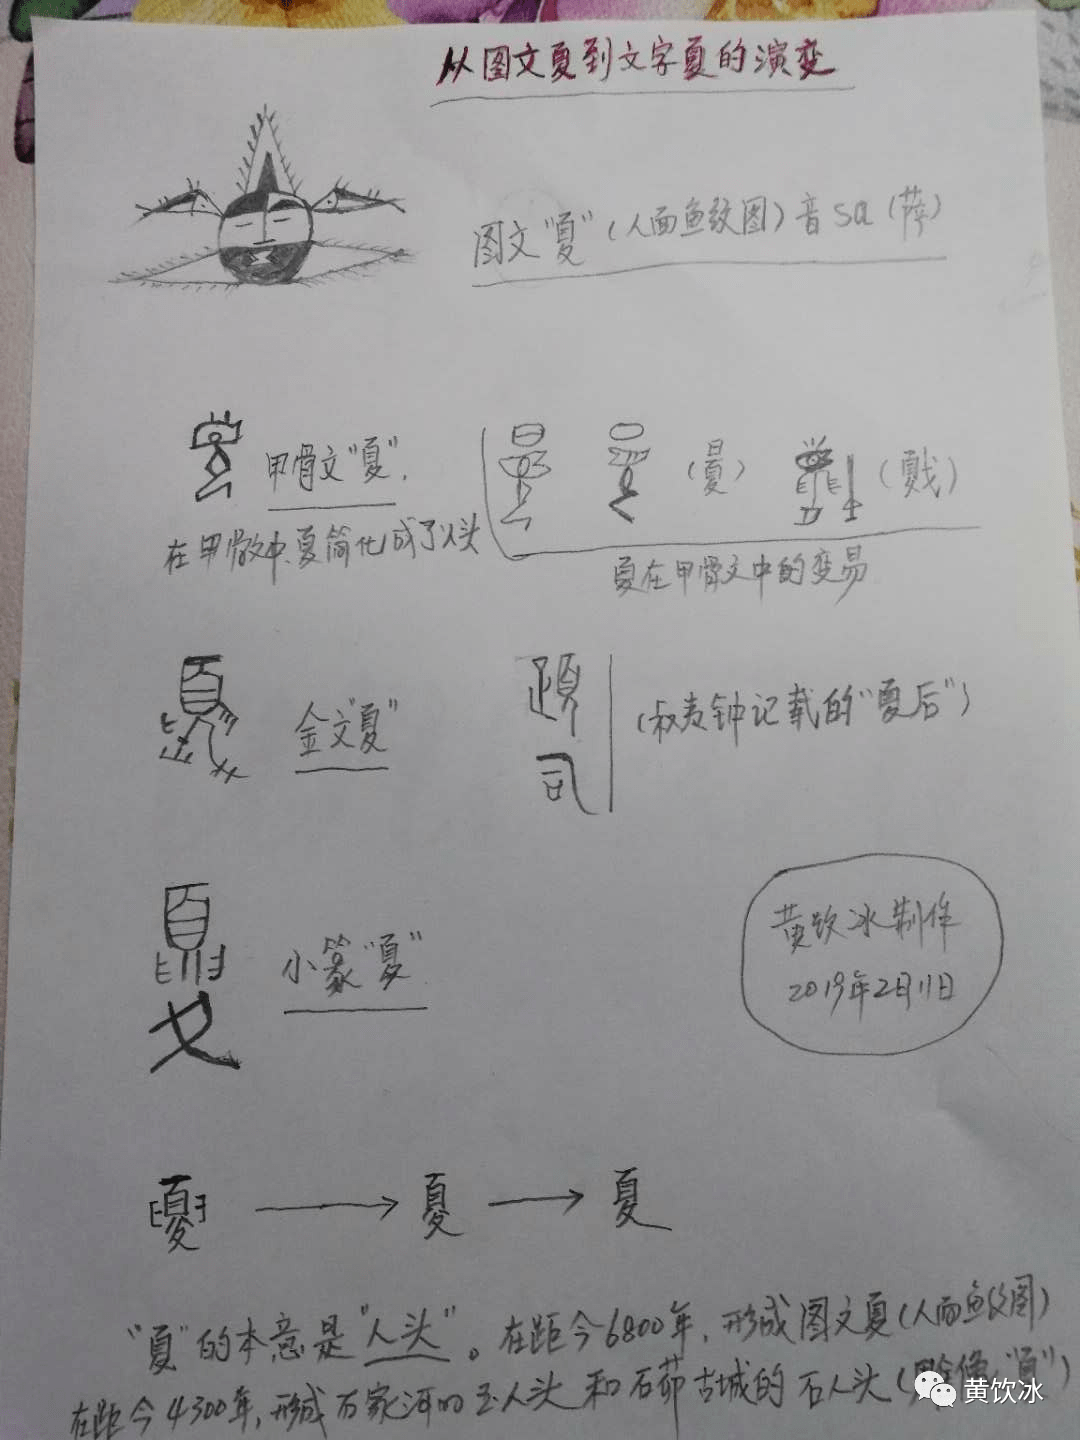 从图文夏到文字夏的演变
图文"夏"(人面鱼纹图)音sa(萨)
甲骨文"夏".
在甲骨文中、夏简化成了人头
(夓)
(戛)
夏在甲骨文中的变易
金文"夏"
(叔夷钟记载的"夏后")
小篆"夏"
黄饮冰制作
2019年2月11日
夏 夏
"夏"的本意是"人头"。在距今6800年,形成图文夏(人面鱼纹图)
在距今4300年,形成石家河的玉人头和石茆古城的石人头
黄饮冰